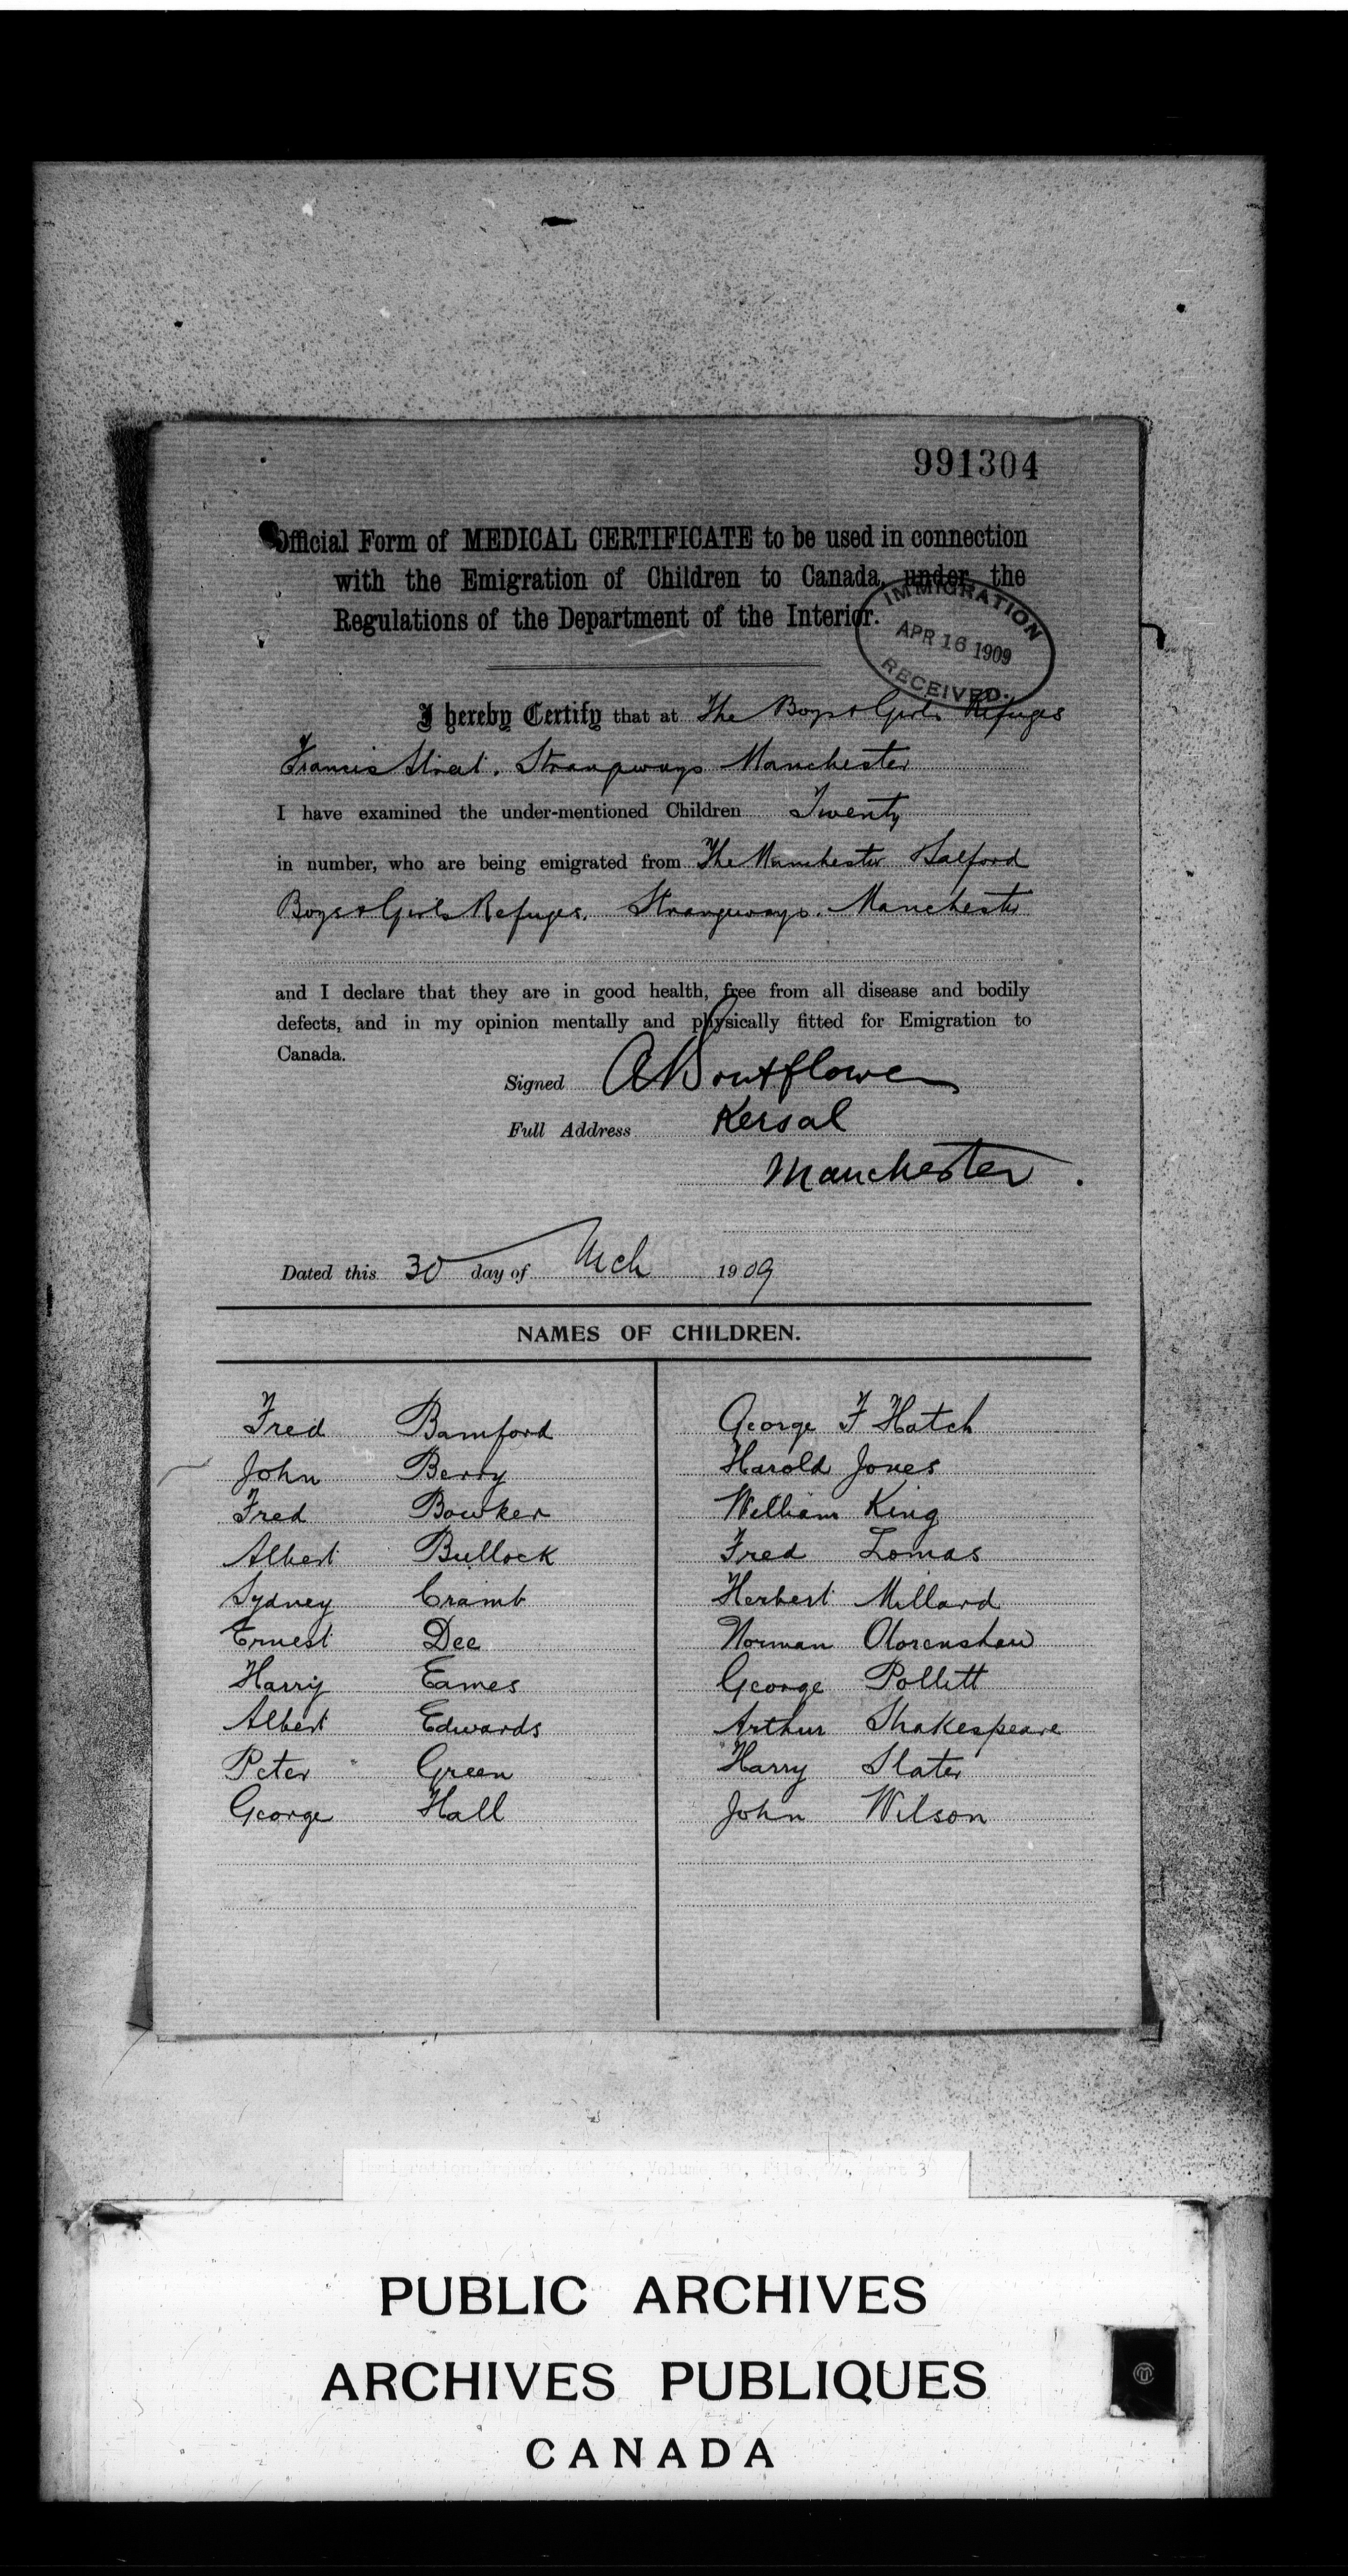 991304
Official Form of MEDICAL CERTIFICATE to be used in connection
with the Emigration of Children to Canada, under the
Regulations of the Department of the Interior.
IMMIGRATION
APR 16 1909
RECEIVED.
I hereby Certify that at The Boys & Girls Refuges
Francis Street. Strangways Manchester
I have examined the under-mentioned Children Twenty
in number, who are being emigrated from The Manchester & Salford
Boys & Girls Refuges. Strangeways. Manchester
and I declare that they are in good health, free from all disease and bodily
defects, and in my opinion mentally and physically fitted for Emigration to
Canada.
Signed A Boutflower
Full Address Kersal
Manchester.
Dated this 30 day of Mch 1909
NAMES OF CHILDREN.
Fred Bamford
John Berry
Fred Bowker
Albert Bullock
Sydney Cramb
Ernest Dee
Harry Eames
Albert Edwards
Peter Green
George Hall
George F Hatch
Harold Jones
William King
Fred Lomas
Herbert Millard
Norman Olorenshaw
George Pollitt
Arthur Shakespeare
Harry Slater
John Wilson
PUBLIC ARCHIVES
ARCHIVES PUBLIQUES
CANADA